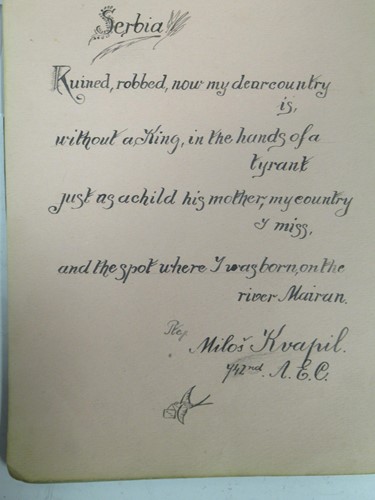 Serbia
Ruined, robbed, now my dear country
is,
without a King, in the hands of a
tyrant
just as a child his mother, my country
I miss,
and the spot where I was born, on the
river Mairan.
Miloš Kvapil.
1/42nd. A.E.C.